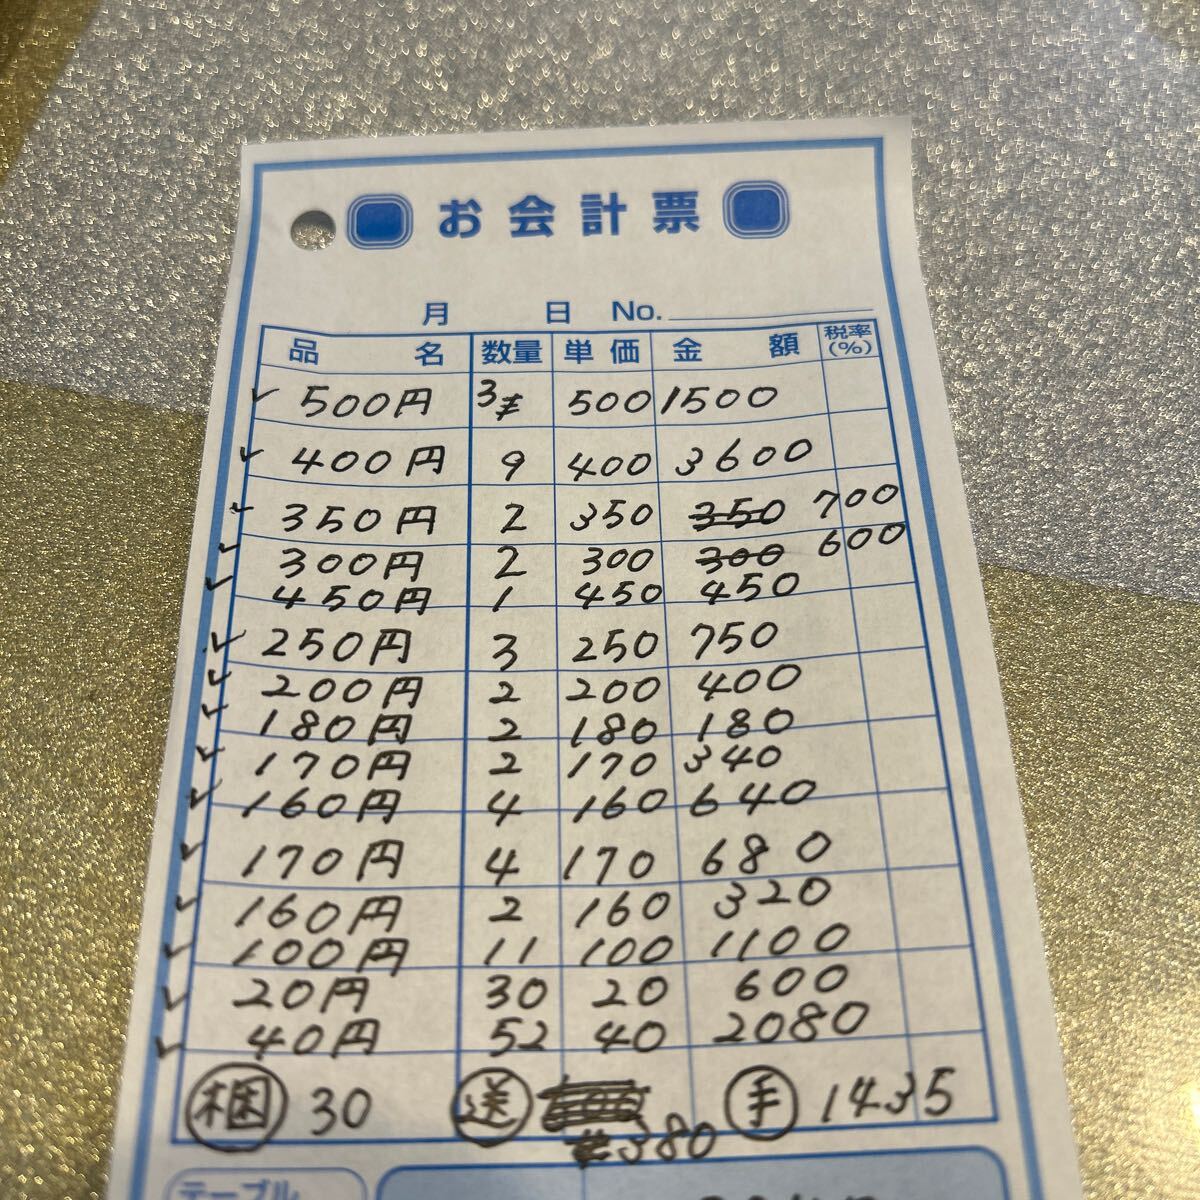 お会計票
月 日 No.
品名 数量 単価 金額 税率(%)
500円 3 500 1500
400円 9 400 3600
350円 2 350 350 700
300円 2 300 300 600
450円 1 450 450
250円 3 250 750
200円 2 200 400
180円 2 180 180
170円 2 170 340
160円 4 160 640
170円 4 170 680
160円 2 160 320
100円 11 100 1100
20円 30 20 600
40円 52 40 2080
梱 30 送 380 手 1435
テーブル